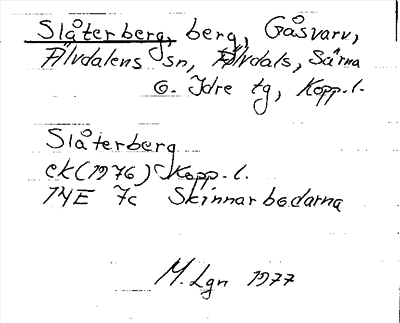 Slåterberg, berg, Gåsvarv,
Älvdalens sn, Älvdals, Särna
o. Idre tg, Kopp.l.
Slåterberg
ek(1976) Kopp.l.
14E 7c Skinnarbodarna
M.Lgn 1977